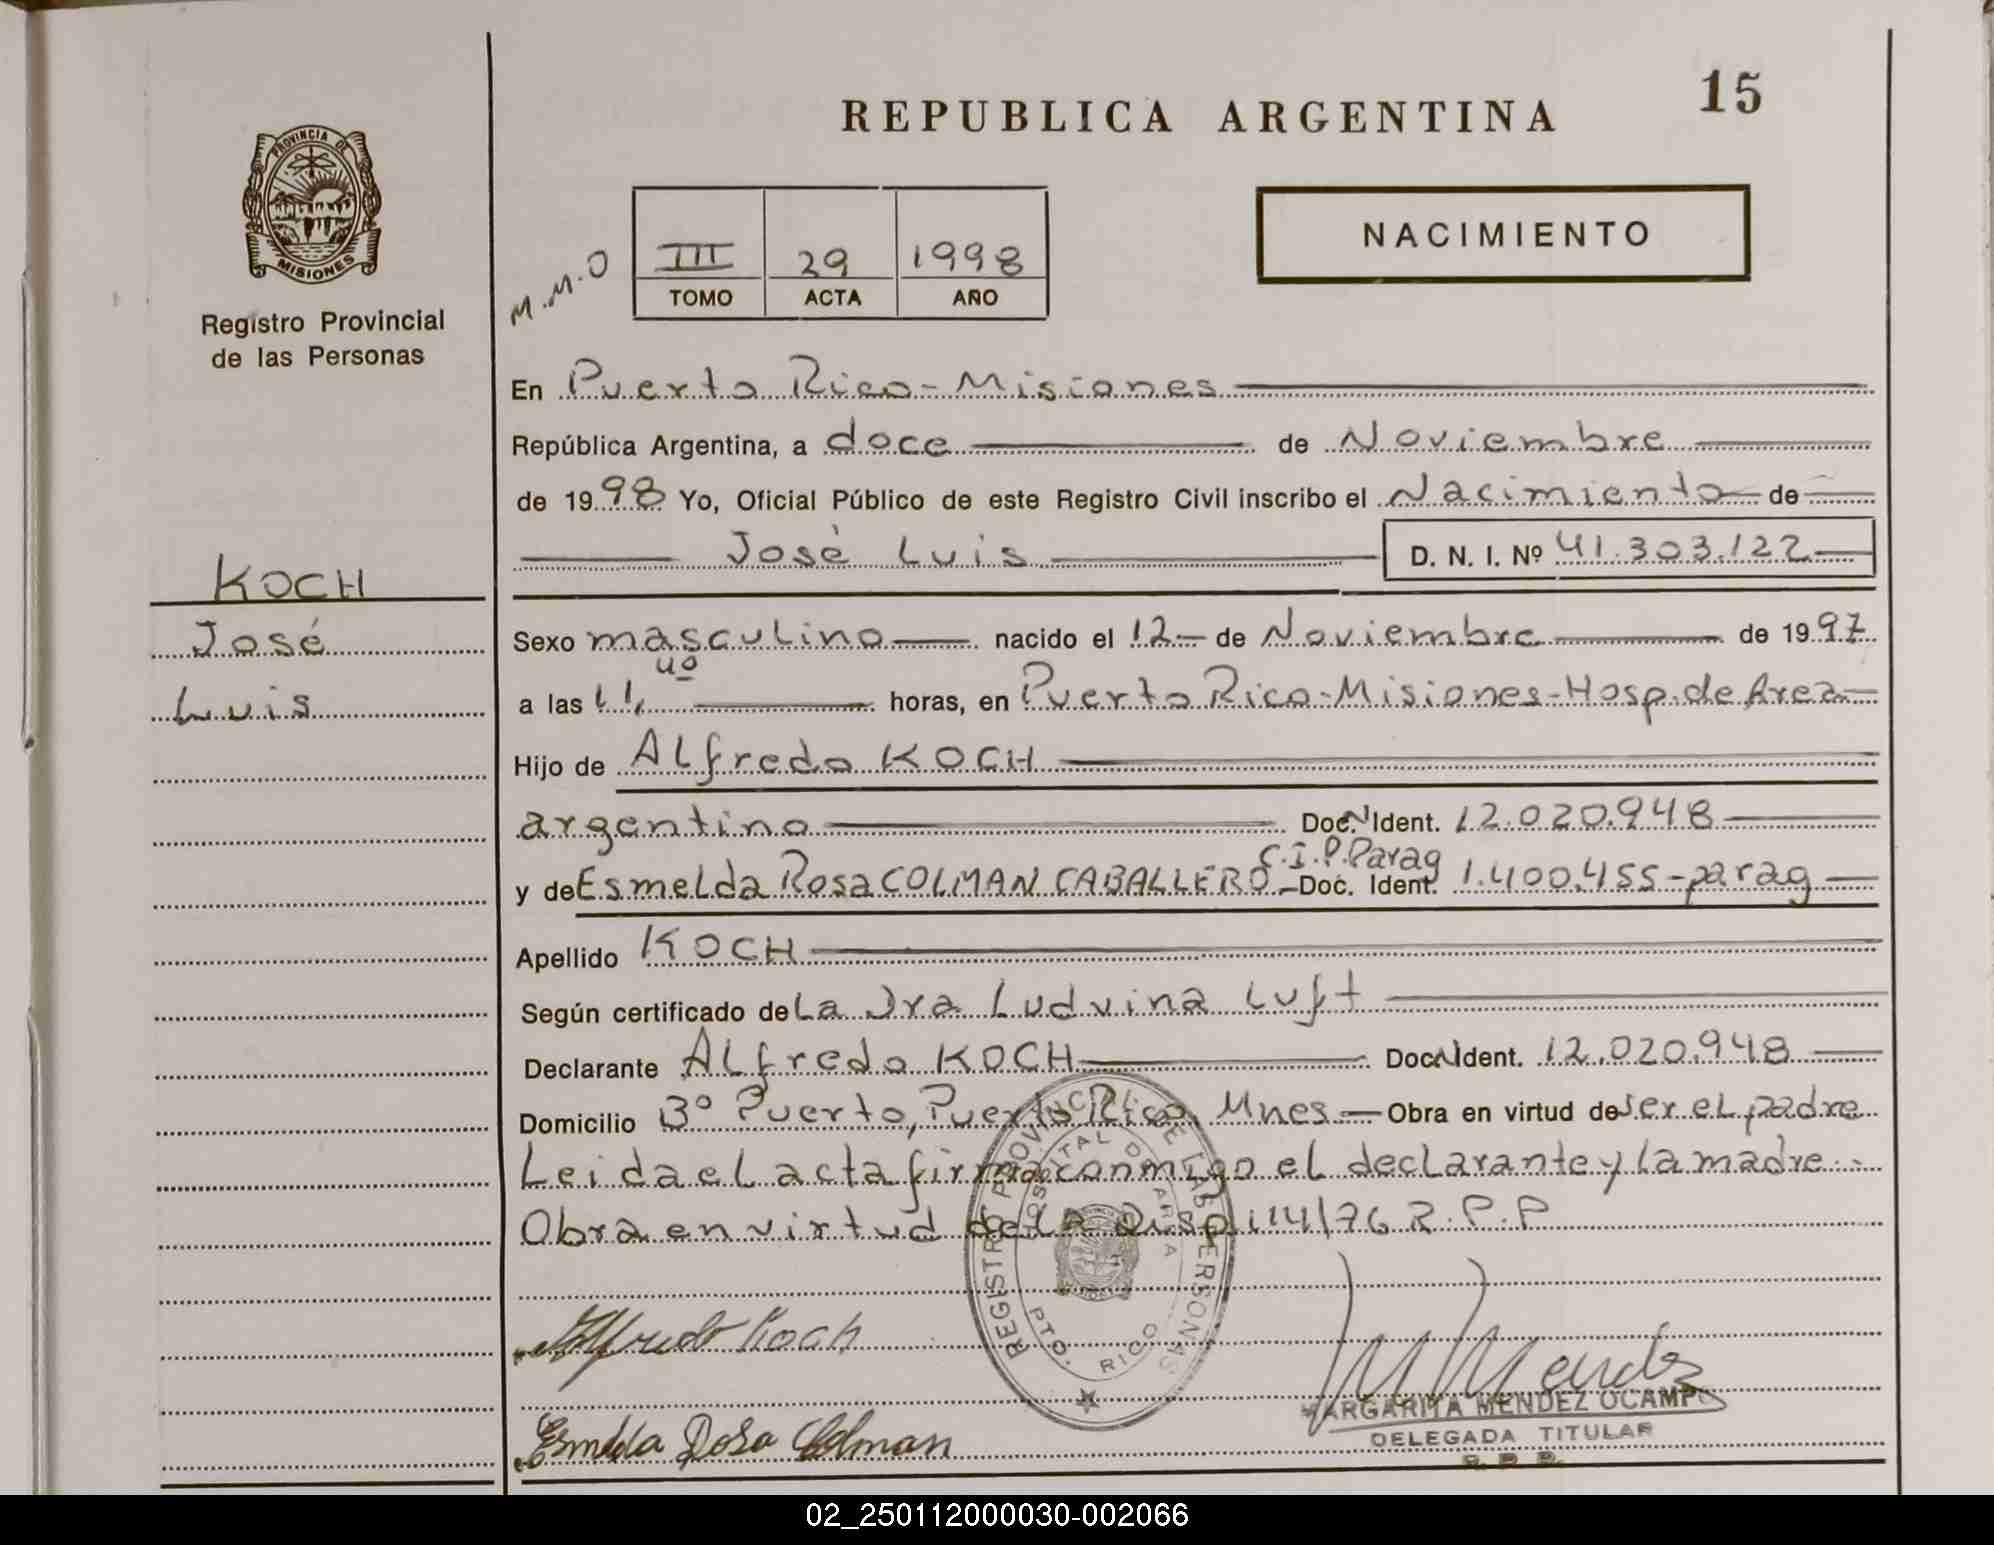 15
REPUBLICA ARGENTINA
PROVINCIA DE
MISIONES
Registro Provincial
de las Personas
NACIMIENTO
M.M.O
III 29 1998
TOMO ACTA AÑO
En Puerto Rico - Misiones
República Argentina, a doce de Noviembre
de 1998 Yo, Oficial Público de este Registro Civil inscribo el Nacimiento de
José Luis D. N. I. Nº 41.303.122
KOCH
José
Luis
Sexo masculino nacido el 12 de Noviembre de 1997
a las 11,40 horas, en Puerto Rico - Misiones - Hosp. de Area
Hijo de Alfredo KOCH
argentino Doc. N Ident. 12.020.948
C.I.P. Parag
y de Esmelda Rosa COLMAN CABALLERO - Doc. Ident. 1.400.455 - parag
Apellido KOCH
Según certificado de La Dra Ludvina Luft
Declarante Alfredo KOCH Doc N Ident. 12.020.948
Domicilio Bº Puerto, Puerto Rico, Mnes. Obra en virtud de ser el padre
Leida el acta firma conmigo el declarante y la madre.
Obra en virtud de la Disp 114/76 R.P.P
REGISTRO PROVINCIAL DE LAS PERSONAS
HOSPITAL DE AREA
PTO. RICO
Alfredo Koch
M Mendez
MARGARITA MENDEZ OCAMPO
DELEGADA TITULAR
R. P. P.
Esmelda Rosa Colman
02_250112000030-002066